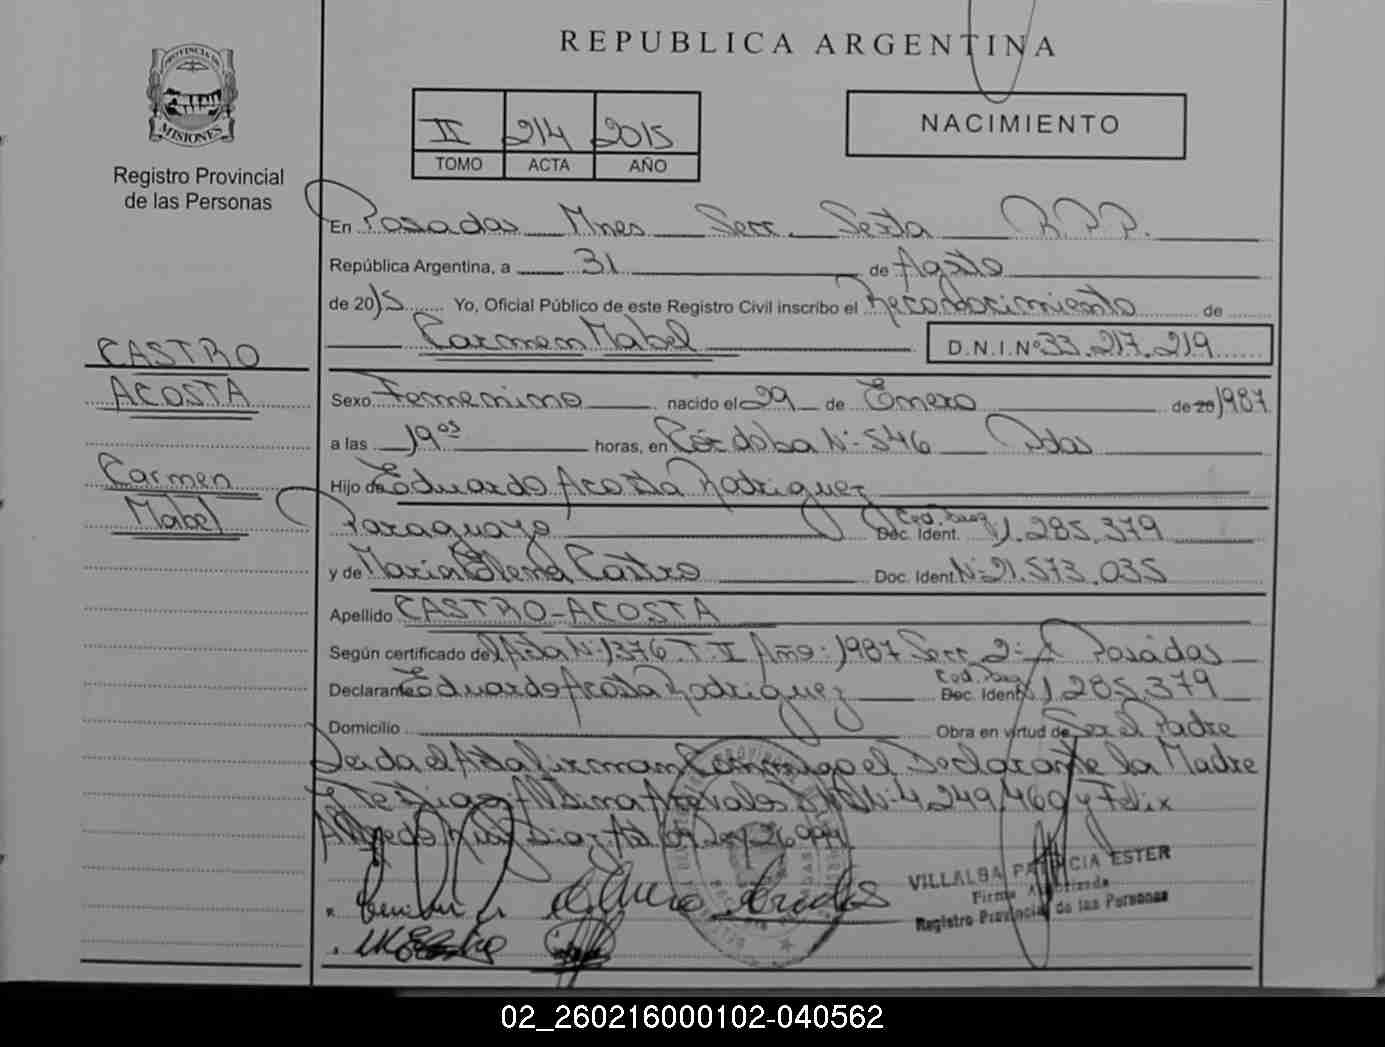 REPUBLICA ARGENTINA
PROVINCIA DE
MISIONES
Registro Provincial
de las Personas
II 214 2015
TOMO ACTA AÑO
NACIMIENTO
En Posadas Mnes Secc. Sexta R.P.P.
República Argentina, a 31 de Agosto
de 2015 Yo, Oficial Público de este Registro Civil inscribo el Reconocimiento de
Carmen Mabel D.N.I.Nº 33.217.219
CASTRO
ACOSTA
Carmen
Mabel
Sexo Femenino nacido el 29 de Enero de 20 1987
a las 19 05 horas, en Córdoba Nº 546 Pdas
Hijo de Eduardo Acosta Rodriguez
Paraguayo Ced. Parag Doc. Ident. Nº 1.285.379
y de Maria Elena Castro Doc. Ident. Nº 21.573.035
Apellido CASTRO-ACOSTA
Según certificado del Acta Nº 1376 T. I Año: 1987 Secc. 2ª Posadas
Declarante Eduardo Acosta Rodriguez Ced. Parag Doc. Ident. Nº 1.285.379
Domicilio Obra en virtud de Ser el Padre
Leida el Acta firman Conmigo el Declarante la Madre
y Testigos Albina Arevalos DNI Nº 4.249.460 y Felix
Alfredo
VILLALBA PATRICIA ESTER
Firma Autorizada
Registro Provincial de las Personas
02_260216000102-040562